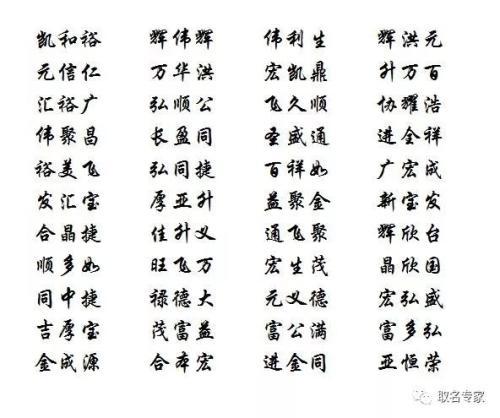 凯和裕 辉伟辉 伟利生 辉洪元
元信仁 万华洪 宏凯鼎 升万百
汇裕广 弘顺公 飞久顺 协耀浩
伟聚昌 长盈同 圣盛通 进全祥
裕美飞 弘同捷 百祥如 广宏成
发汇宝 厚亚升 益聚金 新宝发
合晶捷 佳升义 通飞聚 辉欣台
顺多如 旺飞万 宏生茂 晶欣国
同中捷 禄德大 元义德 宏弘盛
吉厚宝 茂富益 富公满 富多弘
金成源 合本宏 进金同 亚恒荣
取名专家